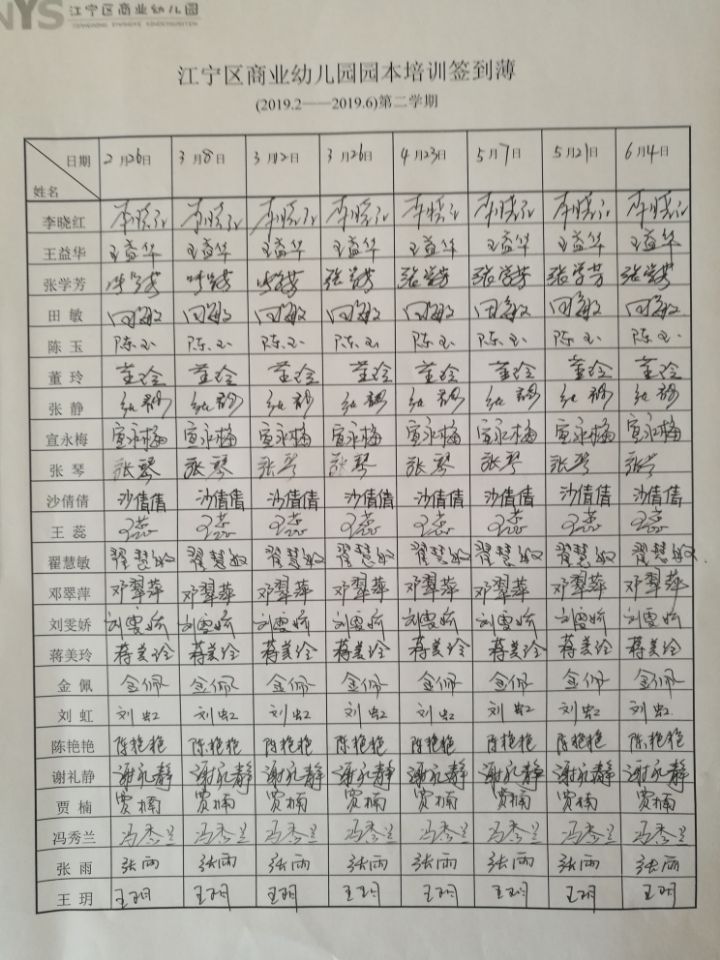 NYS 江宁区商业幼儿园
江宁区商业幼儿园园本培训签到薄
(2019.2——2019.6)第二学期
日期 姓名 2月26日 3月8日 3月12日 3月26日 4月23日 5月7日 5月21日 6月4日
李晓红 李晓红 李晓红 李晓红 李晓红 李晓红 李晓红 李晓红 李晓红
王益华 王益华 王益华 王益华 王益华 王益华 王益华 王益华 王益华
张学芳 张学芳 张学芳 张学芳 张学芳 张学芳 张学芳 张学芳 张学芳
田敏 田敏 田敏 田敏 田敏 田敏 田敏 田敏 田敏
陈玉 陈玉 陈玉 陈玉 陈玉 陈玉 陈玉 陈玉 陈玉
董玲 董玲 董玲 董玲 董玲 董玲 董玲 董玲 董玲
张静 张静 张静 张静 张静 张静 张静 张静 张静
宣永梅 宣永梅 宣永梅 宣永梅 宣永梅 宣永梅 宣永梅 宣永梅 宣永梅
张琴 张琴 张琴 张琴 张琴 张琴 张琴 张琴 张琴
沙倩倩 沙倩倩 沙倩倩 沙倩倩 沙倩倩 沙倩倩 沙倩倩 沙倩倩 沙倩倩
王蕊 王蕊 王蕊 王蕊 王蕊 王蕊 王蕊 王蕊 王蕊
翟慧敏 翟慧敏 翟慧敏 翟慧敏 翟慧敏 翟慧敏 翟慧敏 翟慧敏 翟慧敏
邓翠萍 邓翠萍 邓翠萍 邓翠萍 邓翠萍 邓翠萍 邓翠萍 邓翠萍 邓翠萍
刘雯娇 刘雯娇 刘雯娇 刘雯娇 刘雯娇 刘雯娇 刘雯娇 刘雯娇 刘雯娇
蒋美玲 蒋美玲 蒋美玲 蒋美玲 蒋美玲 蒋美玲 蒋美玲 蒋美玲 蒋美玲
金佩 金佩 金佩 金佩 金佩 金佩 金佩 金佩 金佩
刘虹 刘虹 刘虹 刘虹 刘虹 刘虹 刘虹 刘虹 刘虹
陈艳艳 陈艳艳 陈艳艳 陈艳艳 陈艳艳 陈艳艳 陈艳艳 陈艳艳 陈艳艳
谢礼静 谢礼静 谢礼静 谢礼静 谢礼静 谢礼静 谢礼静 谢礼静 谢礼静
贾楠 贾楠 贾楠 贾楠 贾楠 贾楠 贾楠 贾楠 贾楠
冯秀兰 冯秀兰 冯秀兰 冯秀兰 冯秀兰 冯秀兰 冯秀兰 冯秀兰 冯秀兰
张雨 张雨 张雨 张雨 张雨 张雨 张雨 张雨 张雨
王玥 王玥 王玥 王玥 王玥 王玥 王玥 王玥 王玥